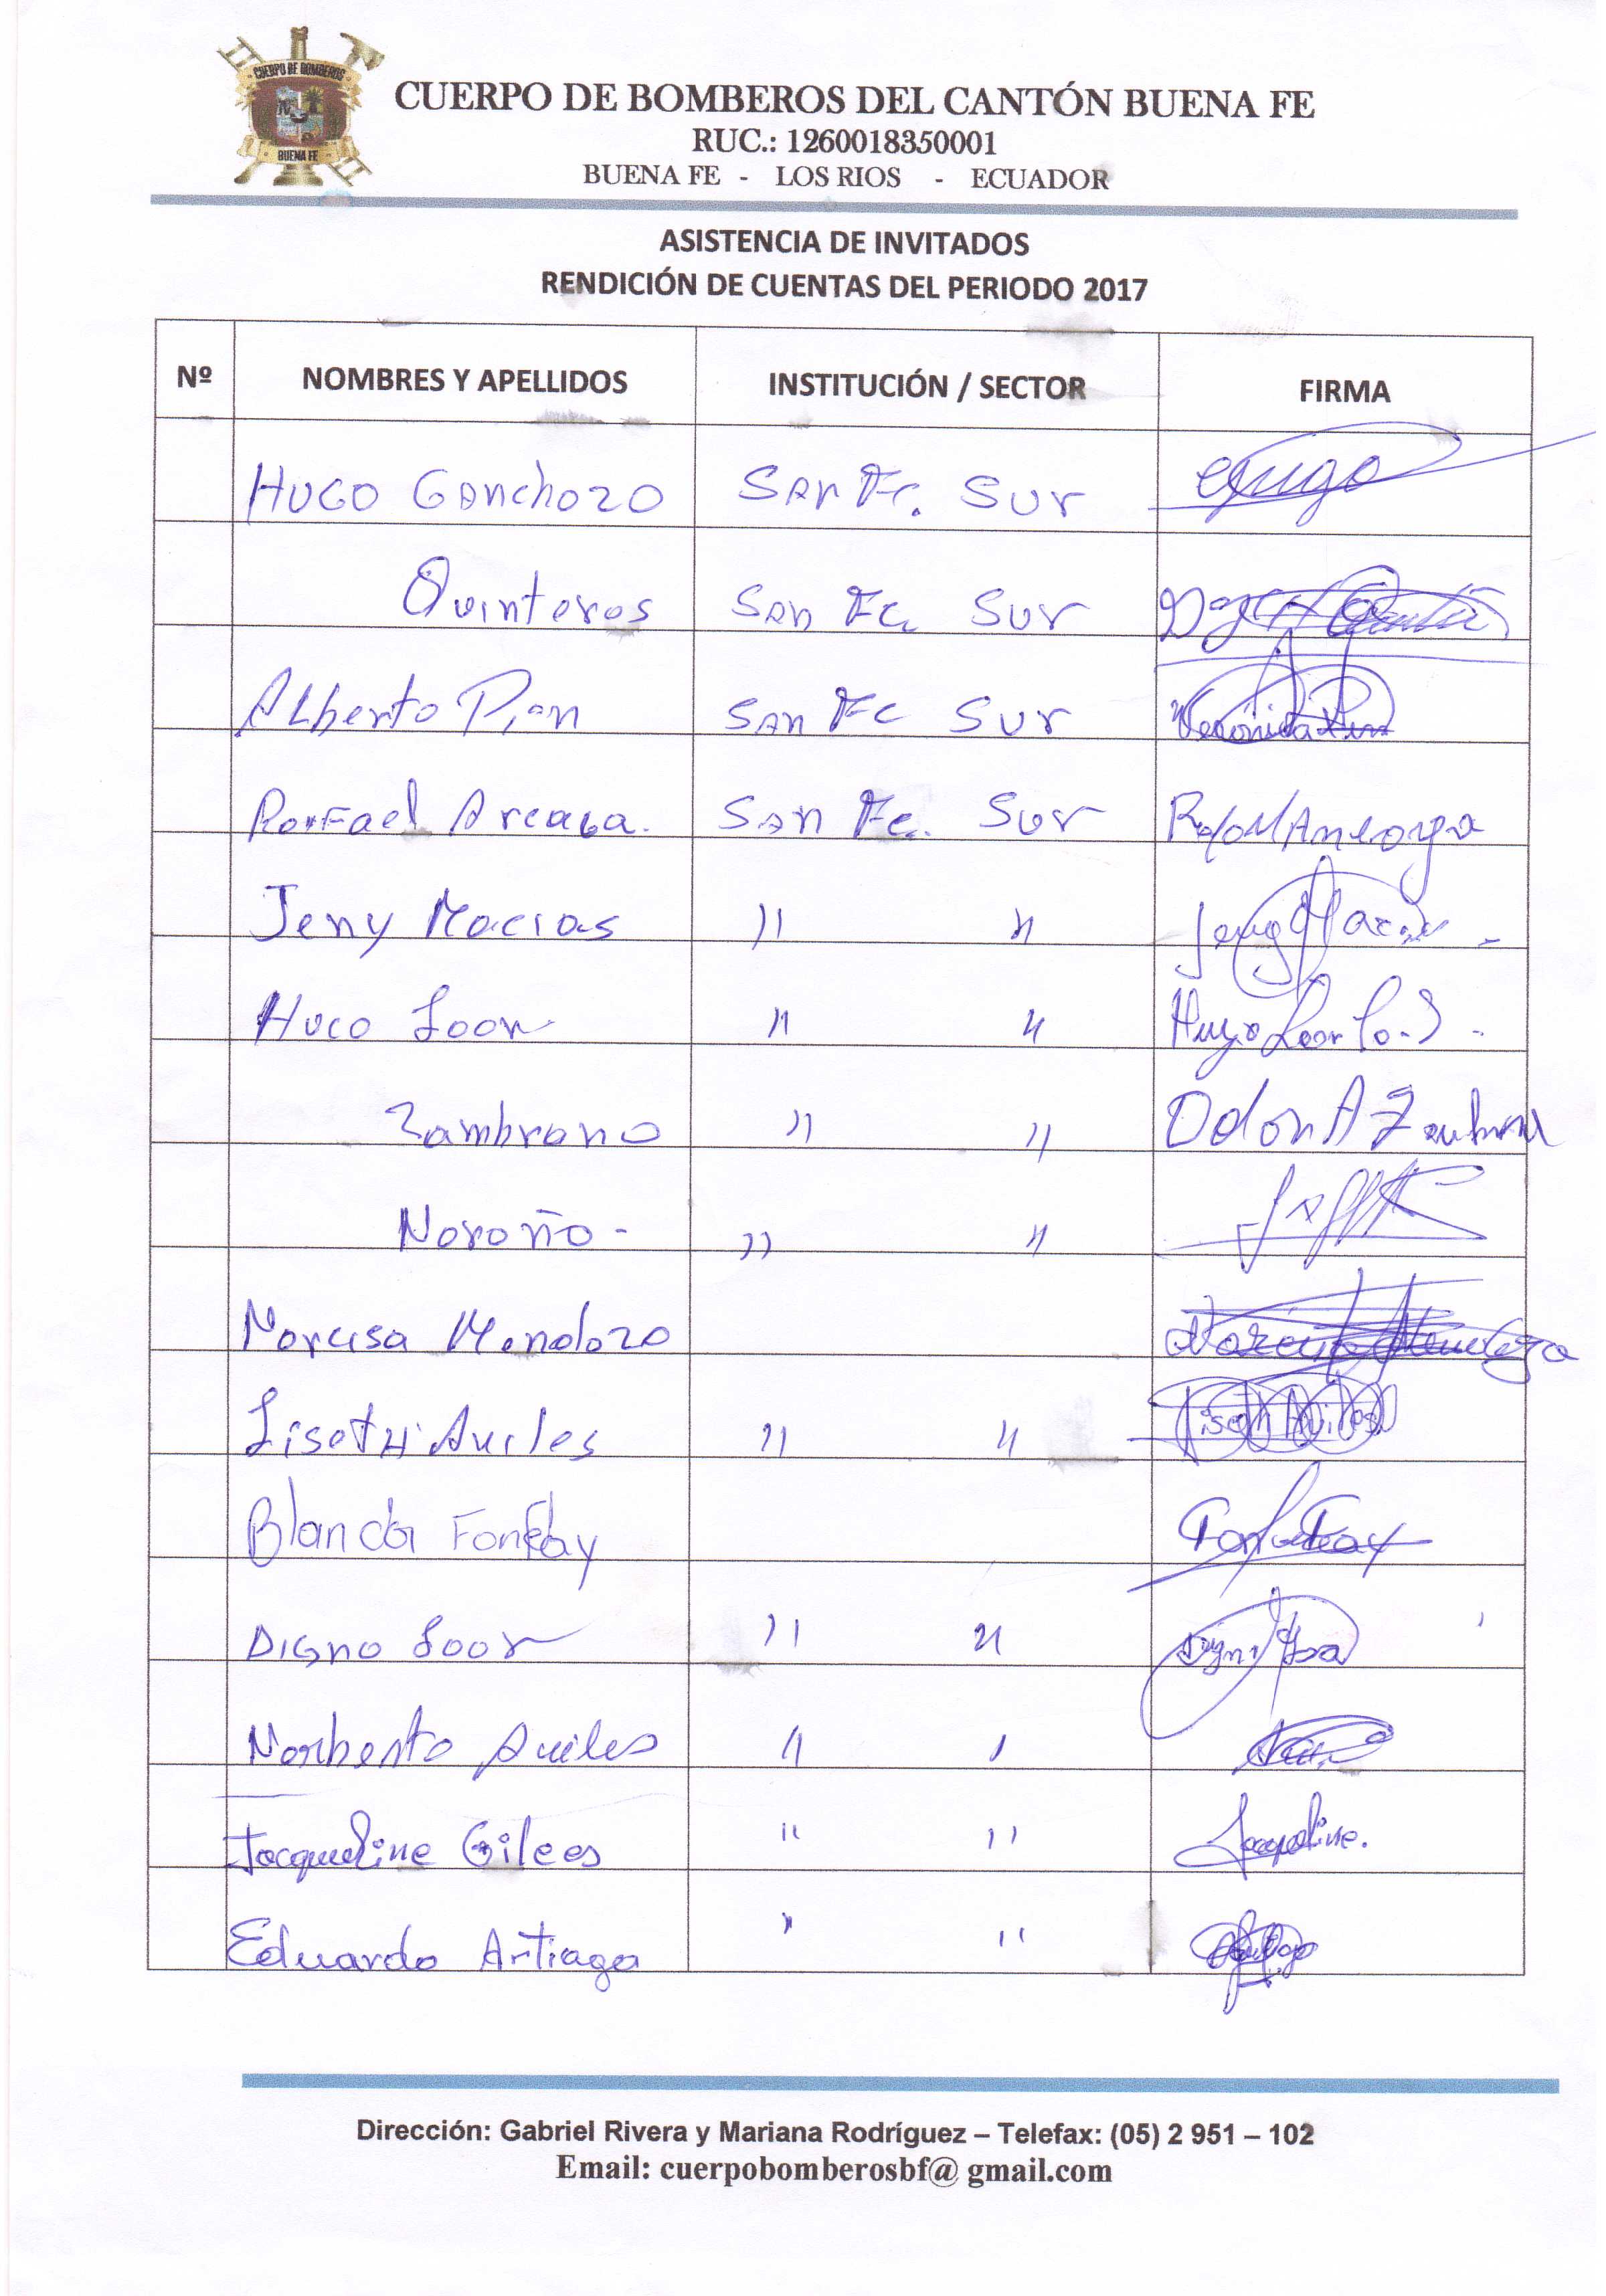 CUERPO DE BOMBEROS
BUENA FE
CUERPO DE BOMBEROS DEL CANTÓN BUENA FE
RUC.: 1260018350001
BUENA FE - LOS RIOS - ECUADOR
ASISTENCIA DE INVITADOS
RENDICIÓN DE CUENTAS DEL PERIODO 2017
Nº NOMBRES Y APELLIDOS INSTITUCIÓN / SECTOR FIRMA
HUGO GANchozo SAN Fc. SUR Hugo
Quinteros SAN Fc. SUR
Alberto Pian SAN Fc SUR Veronica
Rafael Arcaga. SAN Fc. SUR
Jeny Macias " " Jeny Macias
Hugo Loor " " Hugo Loor
Zambrano " " Odon A Zambrano
Noroño - " "
Narcisa Mendoza Narcisa Mendoza
LisetH Aviles " " Liseth Aviles
Blanca Fonfay
Digno Loor " "
Norberto Aviles " "
Jacqueline Gilees " " Jacqueline.
Eduardo Artiaga " "
Dirección: Gabriel Rivera y Mariana Rodríguez – Telefax: (05) 2 951 – 102
Email: cuerpobomberosbf@ gmail.com